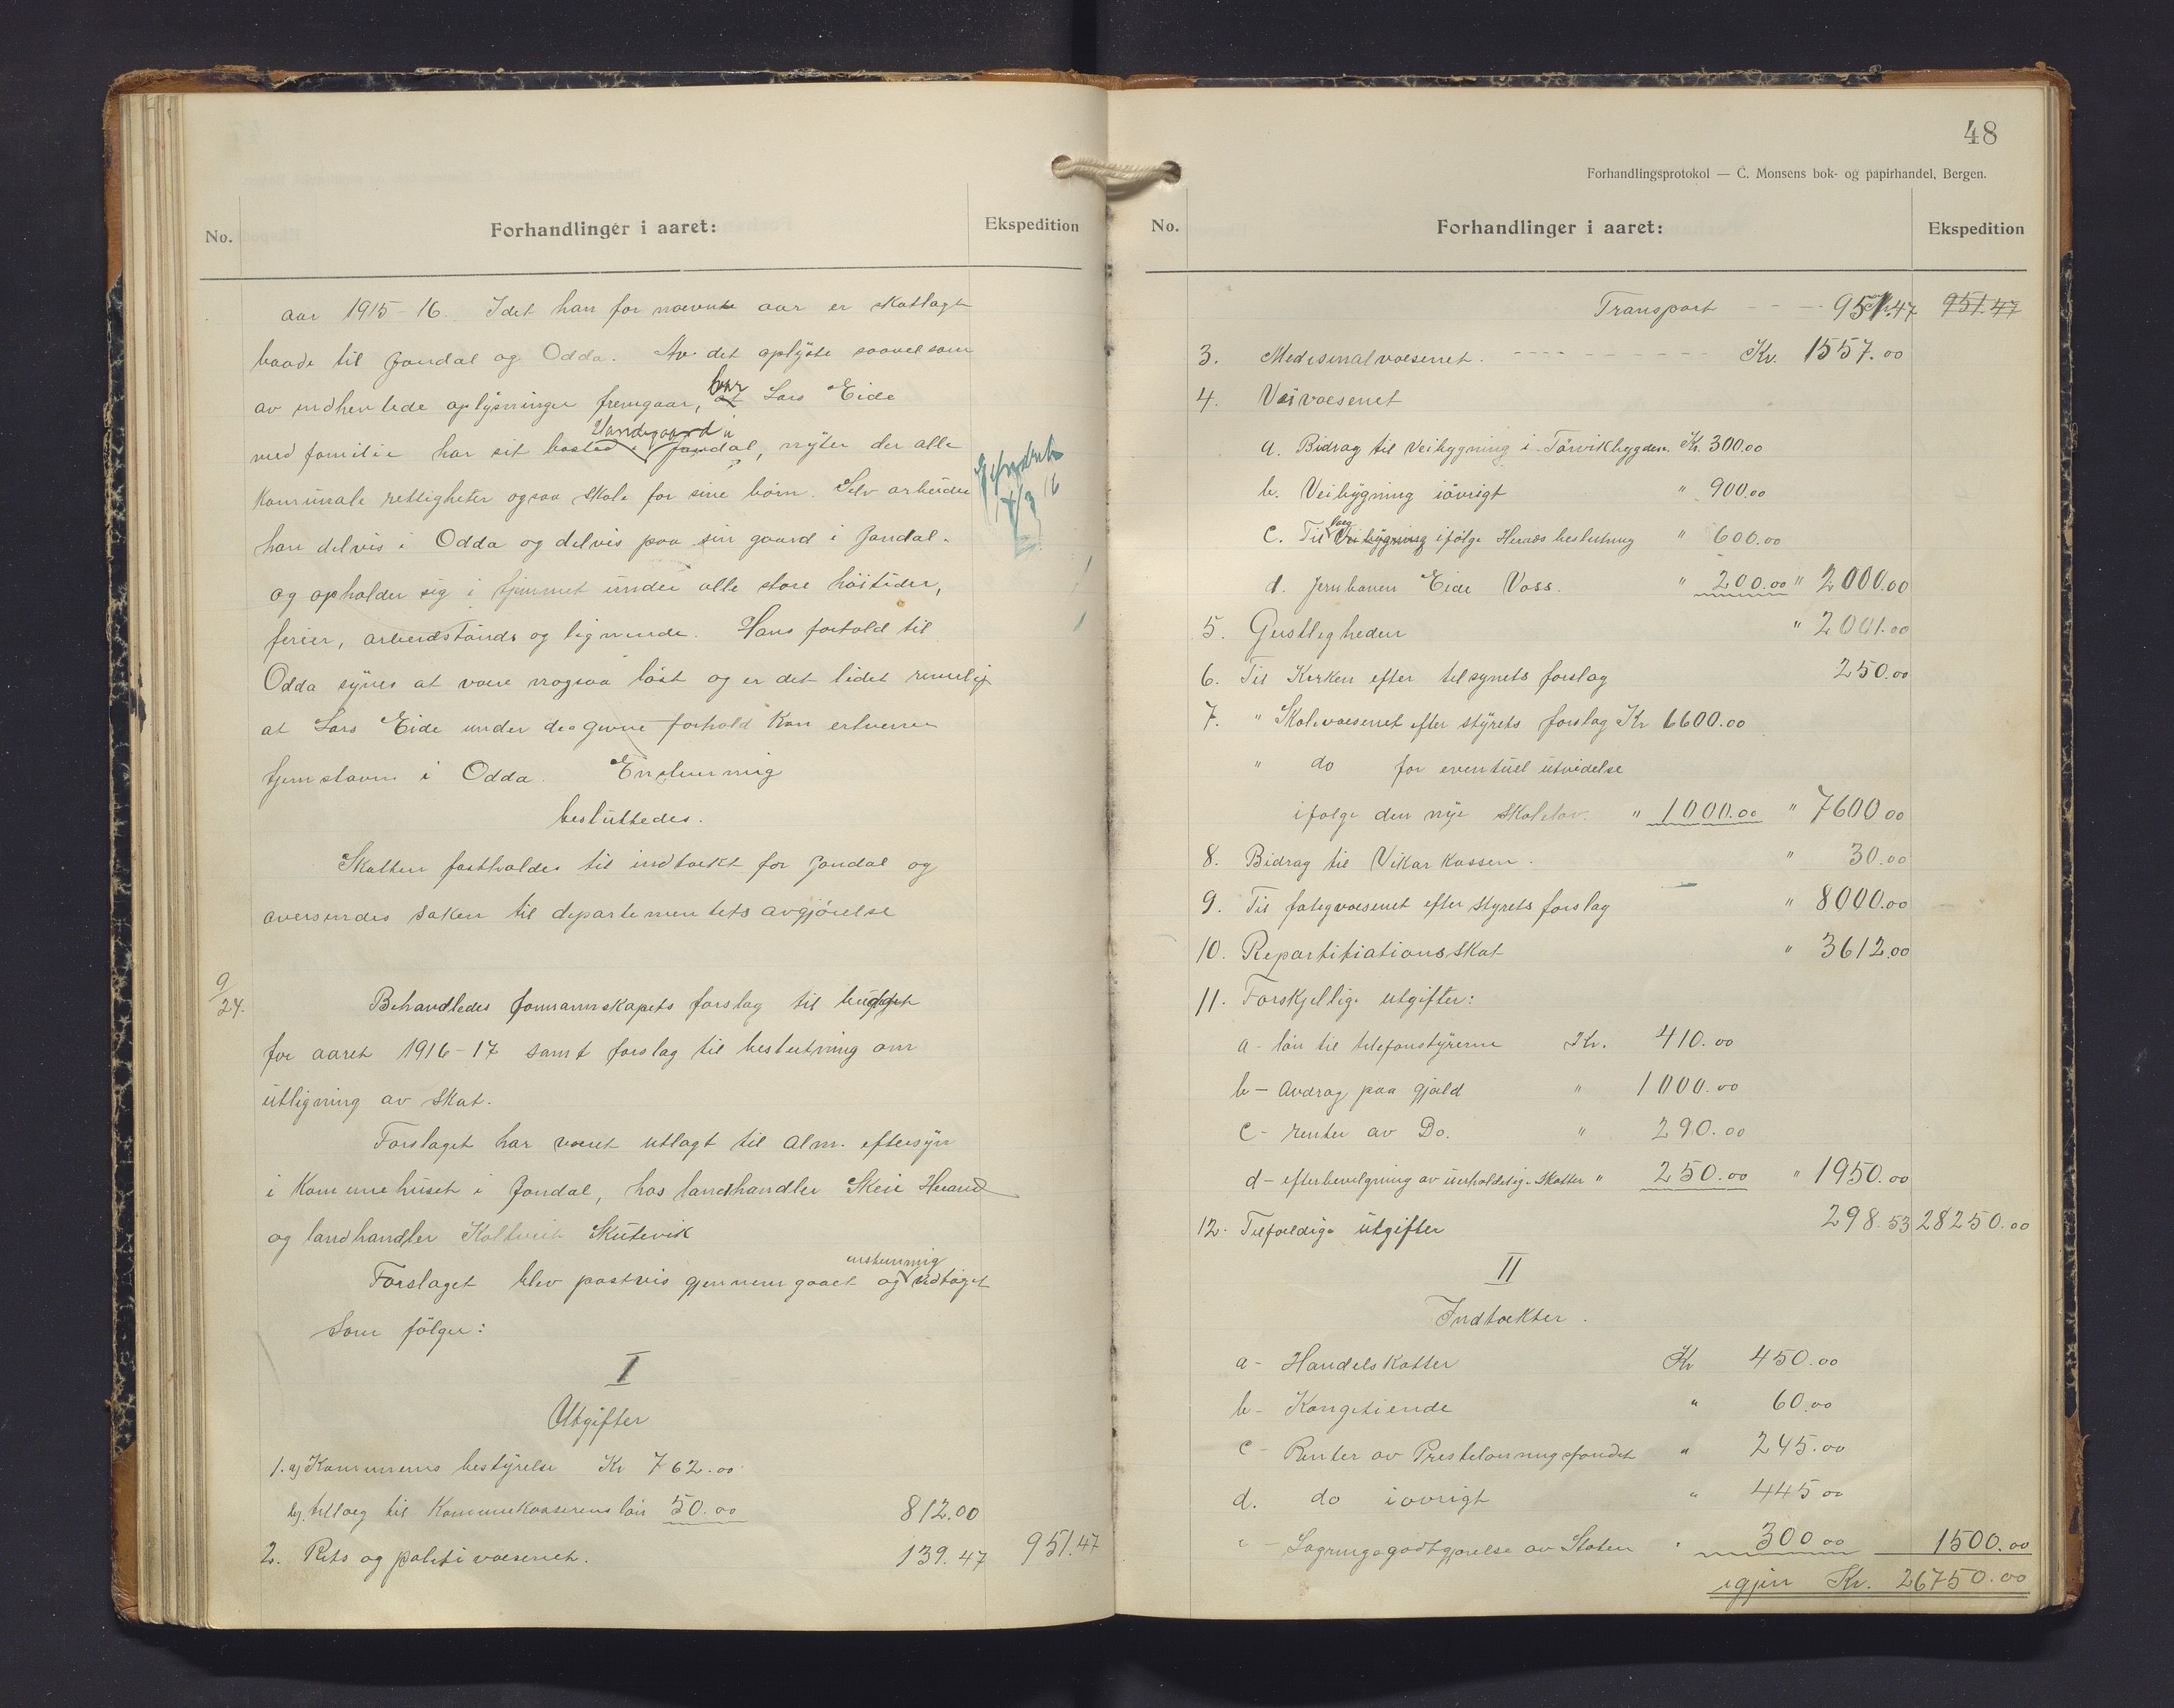 No.
Forhandlinger i aaret:
Ekspedition
aar 1915-16. Idet han for nævnte aar er skatlagt
baade til Jondal og Odda. Av det oplyste saavel som
av indhentede oplysninger fremgaar, at Lars Eide
har
med familie har sit bosted i Jondal, nyter der alle
komunale rettigheter ogsaa skole for sine børn. Selv arbeider
han delvis i Odda og delvis paa sin gaard i Jondal.
og opholder sig i hjemmet under alle store høitider,
ferier, arbeidstands og lignende. Hans forhold til
Odda synes at være nogsaa løst og er det lidet rimelig
at Lars Eide under de givne forhold kan erhverve
hjemstavn i Odda. Enstemmig
besluttedes.
Skatten fastholdes til indtækt for Jondal og
aversendes saken til departementets avgjørelse
9/24.
Behandledes formannskapets forslag til budgjet
for aaret 1916-17 samt forslag til beslutning om
utligning av skat.
Forslaget har været utlagt til alm. eftersyn
i Kommunehuset i Jondal, hos landhandler Skeie Herand
og landhandler Koltveit Skutevik
enstemmig
Forslaget blev postvis gjennemgaaet og vedtaget
som følger:
I
Utgifter
1. a) Kommunens bestyrelse Kr 762.00
b) tillæg til Kommunekasserens løn 50.00 812.00
2. Rets og politivæsenet. 139.47 951.47
48
Forhandlingsprotokol — C. Monsens bok- og papirhandel, Bergen.
No.
Forhandlinger i aaret:
Ekspedition
Transport - - - 951.47 951.47
3. Medisinalvæsenet. - - - - Kr. 1557.00
4. Veivæsenet
a. Bidrag til veibygning i Tørvikbygden. Kr. 300.00
b. Veibygning iøvrigt " 900.00
c. Til Veibygning ifølge Herads beslutning " 600.00
d. Jernbanen Eide Voss. " 200.00 " 2000.00
5. Geistligheden " 2001.00
6. Til Kirken efter tilsynets forslag 250.00
7. " Skolevæsenet efter styrets forslag Kr 6600.00
" do for eventuel utvidelse
ifølge den nye skolelov. " 1000.00 " 7600 00
8. Bidrag til Vikarkassen. " 30.00
9. Til fatigvæsenet efter styrets forslag " 8000.00
10. Repartitiationsskat " 3612.00
11. Forskjellige utgifter:
a - løn til telefonstyrerne Kr. 410.00
b - Avdrag paa gjæld " 1000.00
c - renter av Do. " 290.00
d - efterbevilgning av uerholdelige skatter " 250.00 " 1950.00
12. Tilfældige utgifter 298.53 28250.00
II
Indtækter.
a - Handelskatter Kr 450.00
b - Kongetiende " 60.00
c - Renter av Prestelønningsfondet " 245.00
d. do iøvrigt " 445 00
Lagringsgodtgjørelse av Staten " 300 00 1500.00
igjen Kr. 26750.00